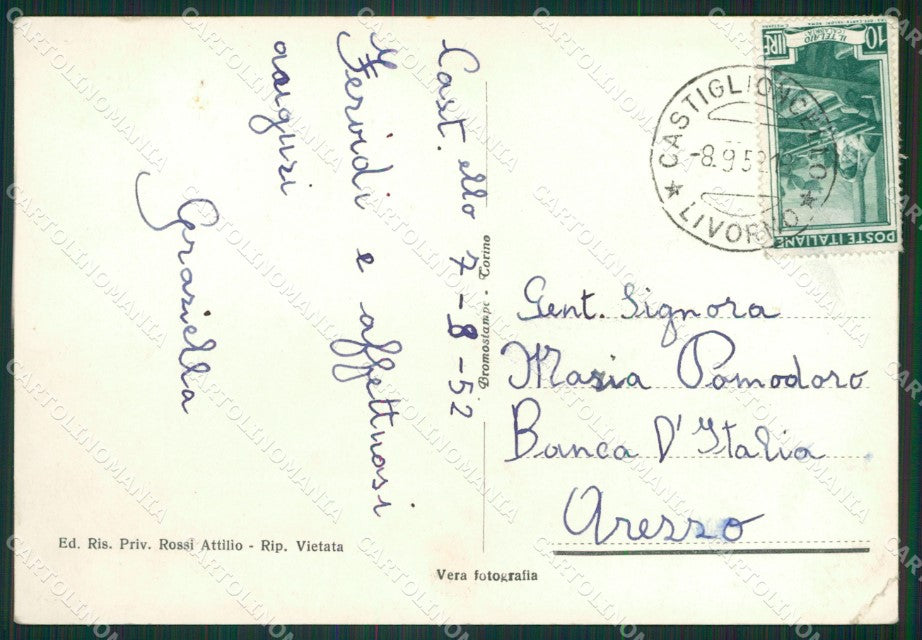 Cast.ello 7-8-52
Fervidi e affettuosi
auguri
Graziella
Bromostampe - Torino
10 LIRE
IL TELAIO
POSTE ITALIANE
CASTIGLIONCELLO
-8.9.52
LIVORNO
Gent. Signora
Maria Pomodoro
Banca D'Italia
Arezzo
Ed. Ris. Priv. Rossi Attilio - Rip. Vietata
Vera fotografia
CARTOLINOMANIA